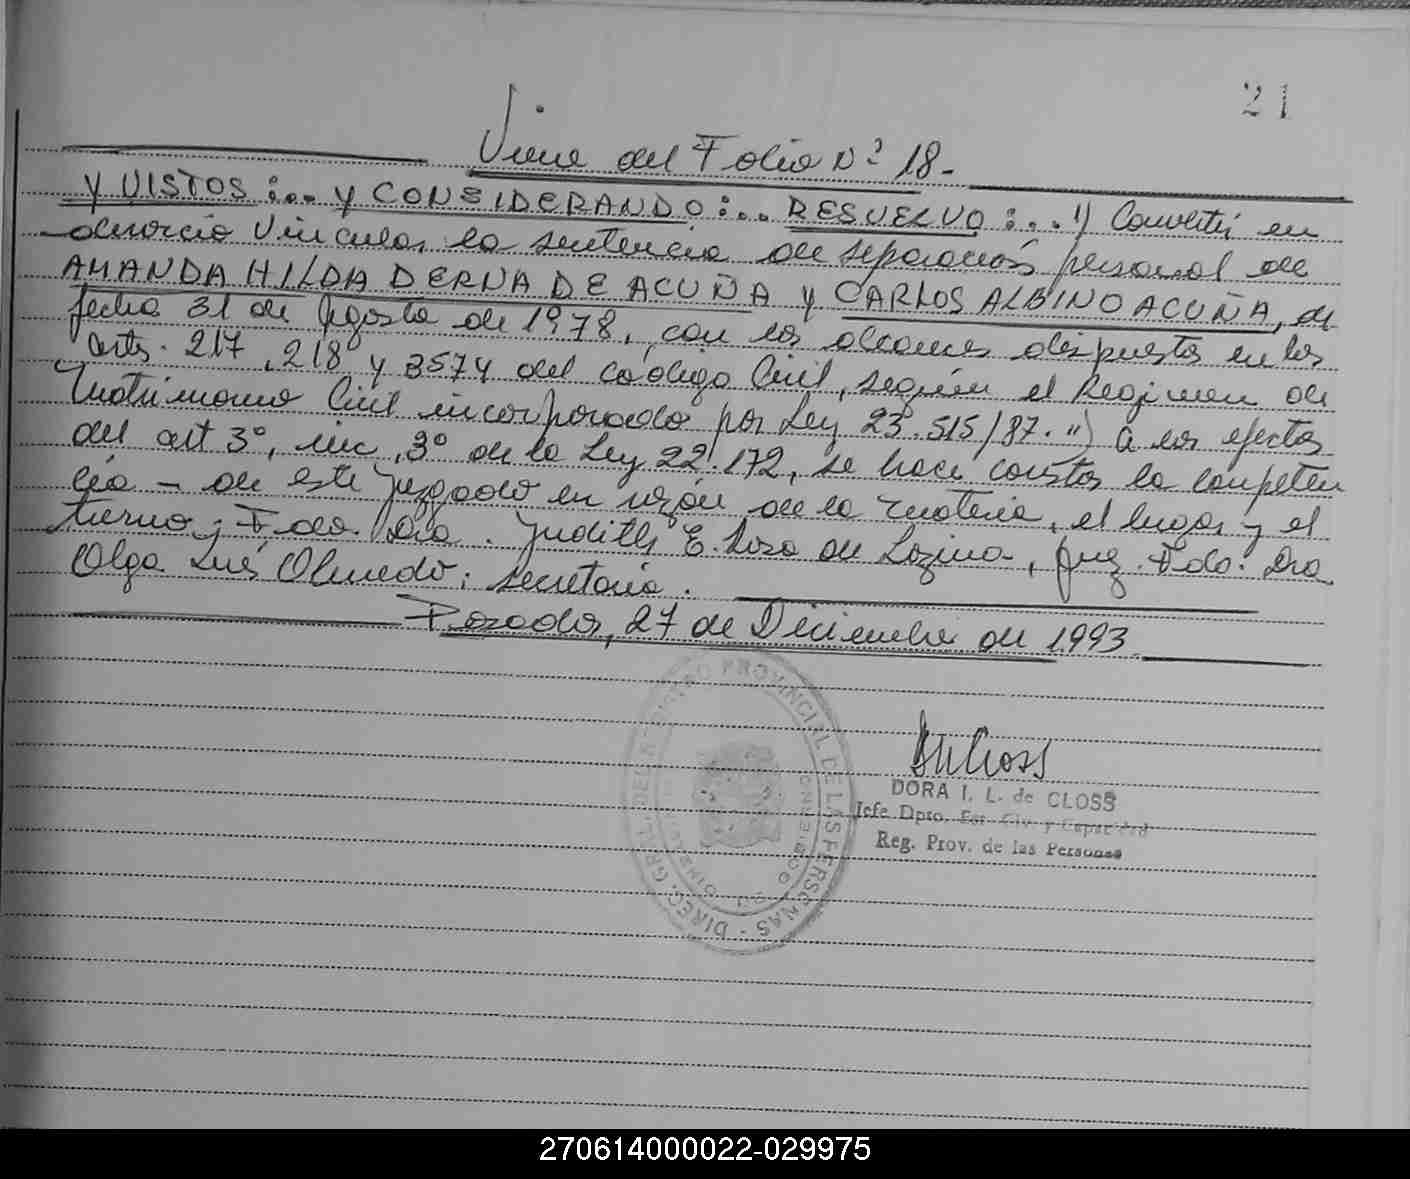 21
Viene del Folio Nº 18.-
Y VISTOS:... Y CONSIDERANDO:... RESUELVO:... ") Convertir en
divorcio vincular la sentencia de separación personal de
AMANDA HILDA DERNA DE ACUÑA y CARLOS ALBINO ACUÑA, de
fecha 31 de Agosto de 1978, con los alcances dispuestos en los
arts. 217, 218 y 3574 del Código Civil, según el Regimen de
Matrimonio Civil incorporado por Ley 23.515/87. ") A los efectos
del art 3º, inc, 3º de la Ley 22.172, se hace constar la competen
cia - de este Juzgado en razón de la materia, el lugar y el
turno; Fdo. Dra. Judith E. de Lozina, Juez. Fdo: Dra
Olga Inés Olmedo; secretaria.
Posadas, 27 de Diciembre de 1993
DORA I. L. de CLOSS
Jefe Dpto. Est. Civ. y Capacidad
Reg. Prov. de las Personas
DIREC. GRAL. DEL REGISTRO PROVINCIAL DE LAS PERSONAS
270614000022-029975